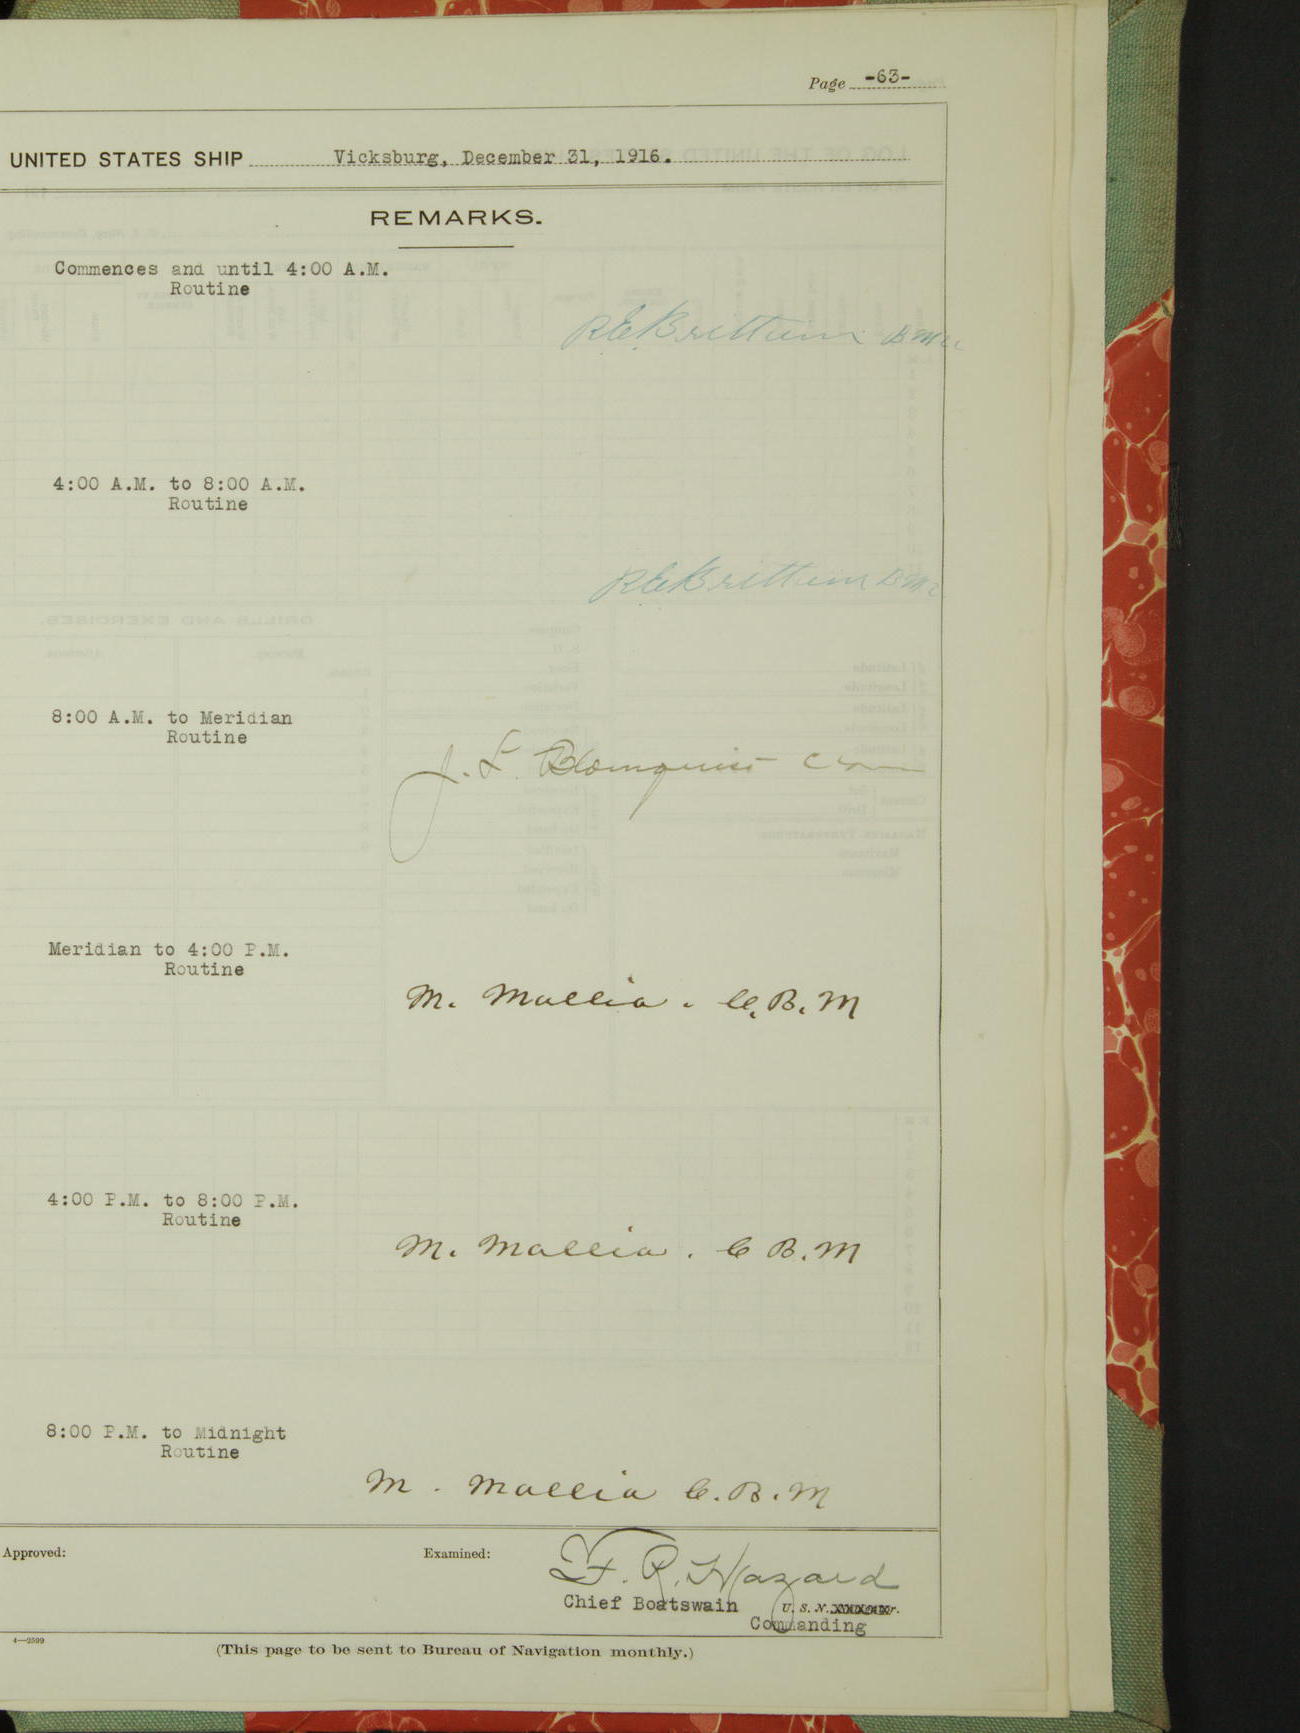 Page -63-
UNITED STATES SHIP Vicksburg, December 31, 1916.
REMARKS.
Commences and until 4:00 A.M.
Routine
R E Brittum
4:00 A.M. to 8:00 A.M.
Routine
R E Brittum
8:00 A.M. to Meridian
Routine
J. F. Blomquist
Meridian to 4:00 P.M.
Routine
M. Mallia. C.B.M
4:00 P.M. to 8:00 P.M.
Routine
M. Mallia. C B.M
8:00 P.M. to Midnight
Routine
M. Mallia C.B.M
Approved:
Examined:
F. R. Hazard
Chief Boatswain U. S. N.
Commanding
4—2599
(This page to be sent to Bureau of Navigation monthly.)